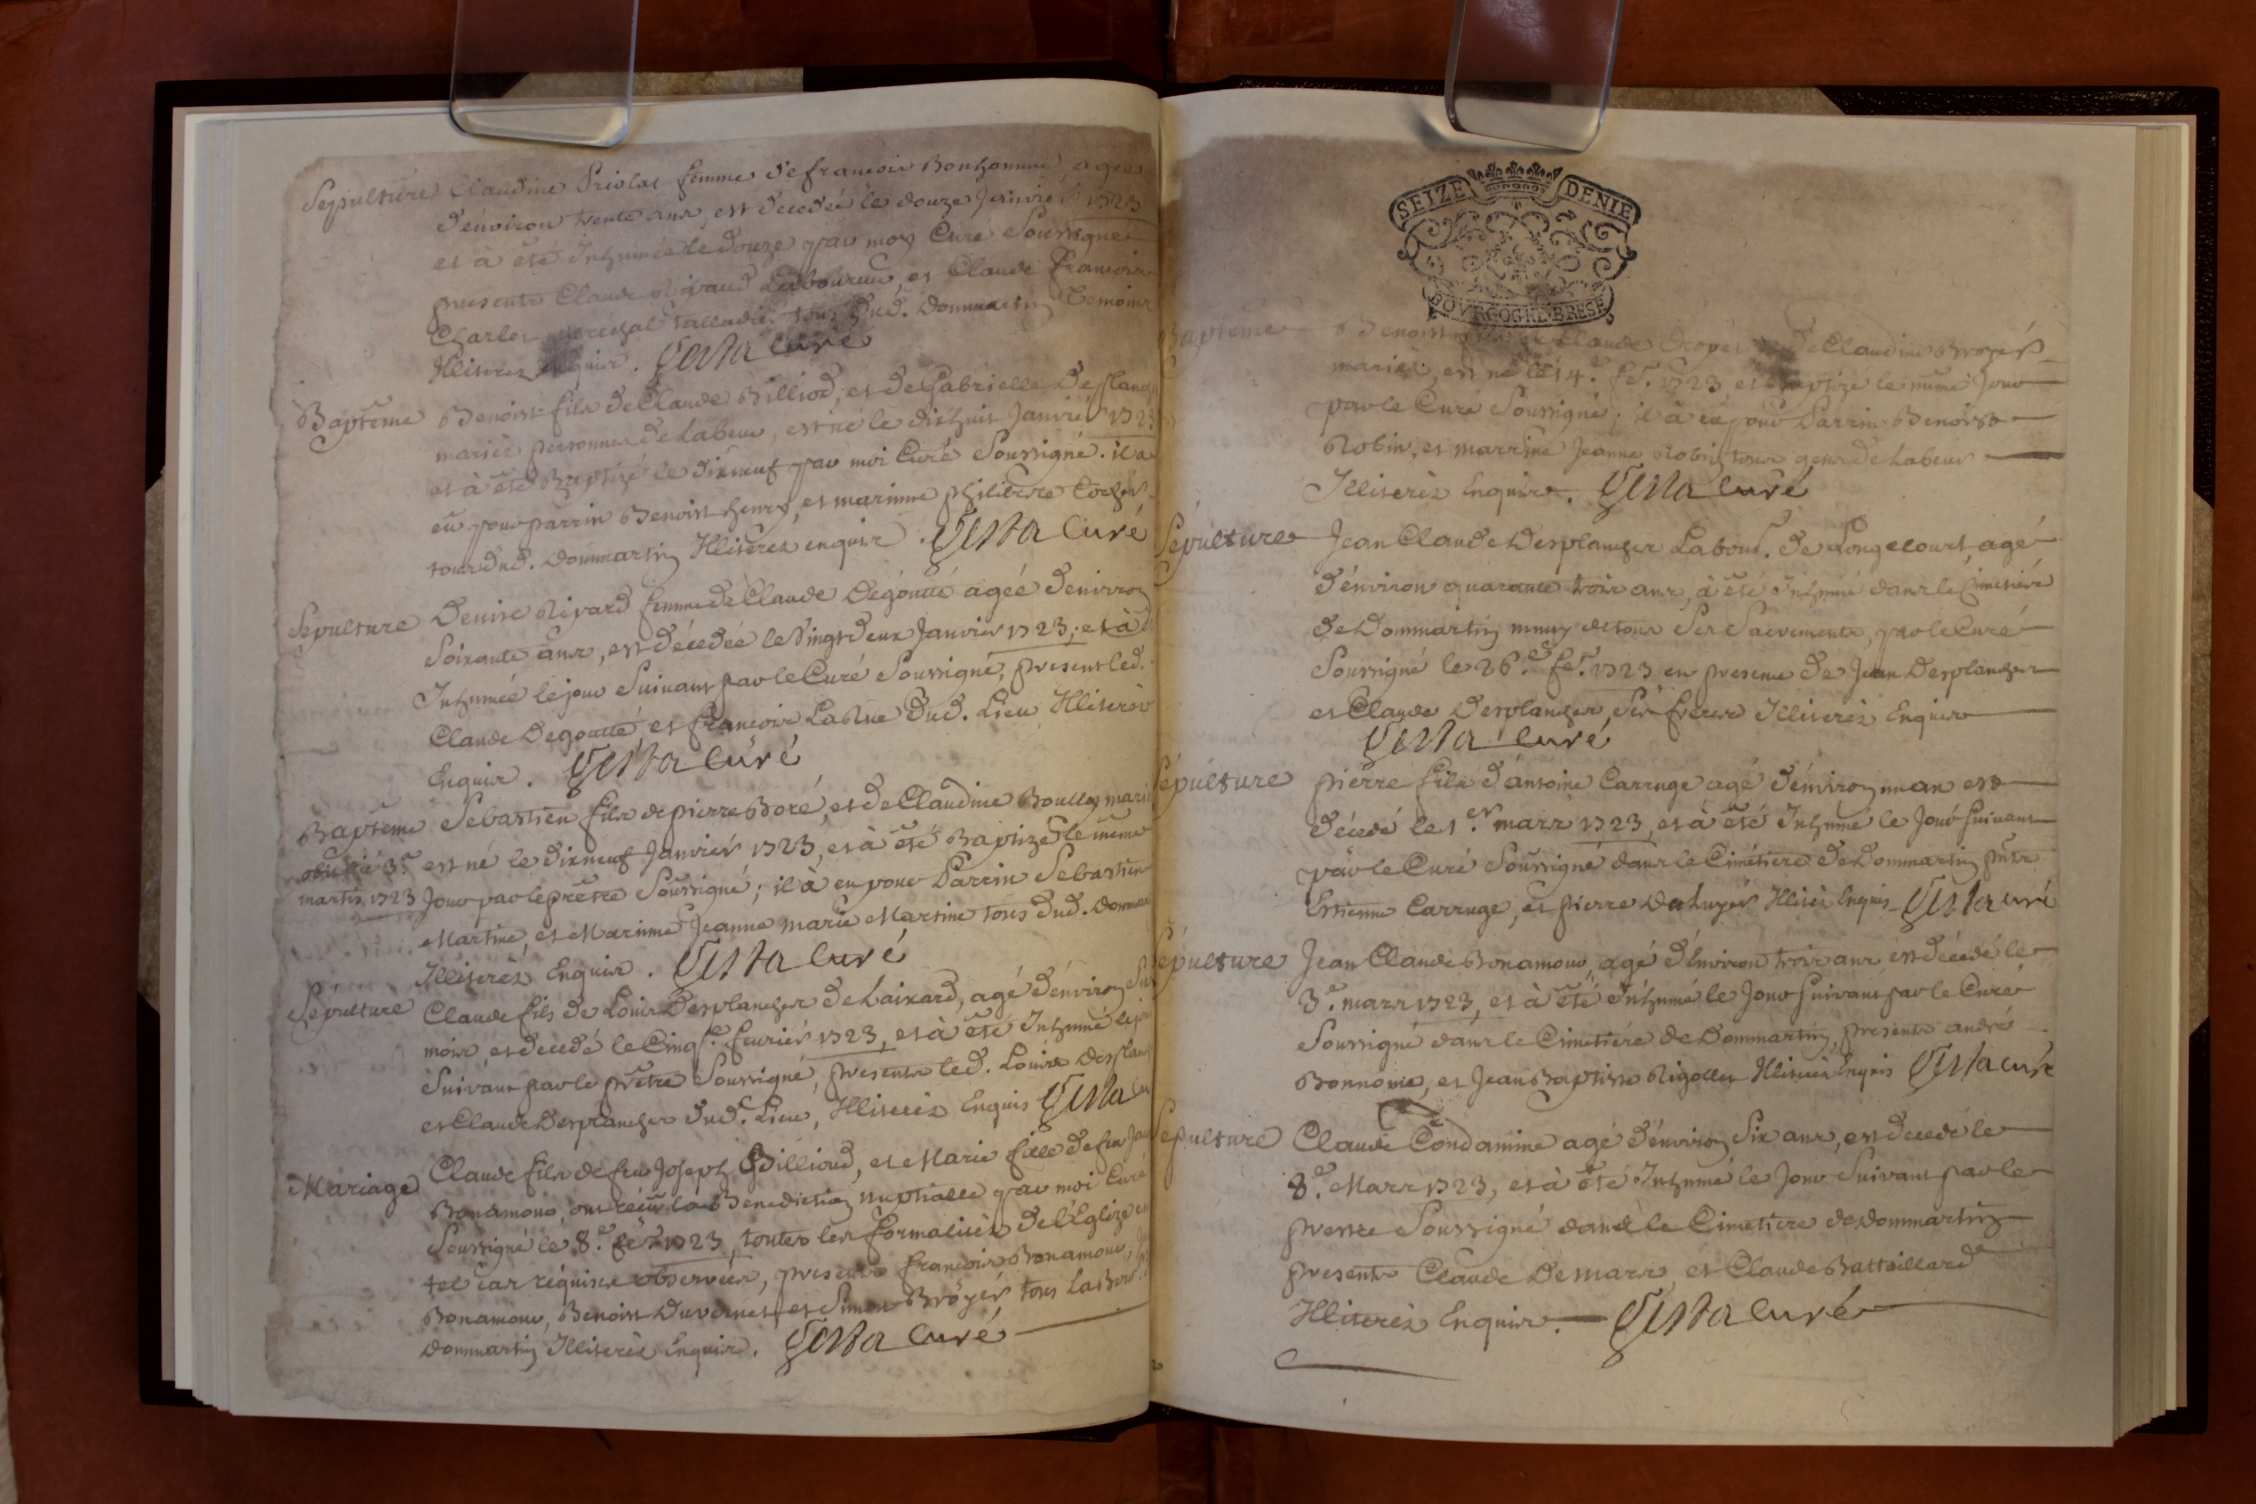 Sepulture Claudine femme de francois Bonhomme agee
d'environ trente ans, est decedée le douze Janvier 1723
et à eté Inhumée le douze par moy Curé Soussigné
presents Claude Rigaud Laboureur, et Claude francois
Charles marechal tous dud. Dommartin Temoins
Illiterez enquis. Gesta Curé
Baptême Benoist fils de Claude Billiod, et de Gabrielle Desplanch
mariés personnes de Labeur, est né le dixhuit Janvier 1723
et à eté Baptizé le dixneuf par moi Curé Soussigné. il a
eu pour parrin Benoist henry, et marinne philiberte
tous dud. Dommartin Illiterez enquis. Gesta Curé
Sepulture Denise Rigard femme de Claude Dégoutte agée d'environ
Soixante ans, est décedée le Vingt deux Janvier 1723; et à
Inhumée le jour Suivant par le Curé Soussigné, present led.
Claude Degoutte, et francois dud. Lieu Illiterés
Enquis. Gesta Curé
Bapteme Sebastien fils de pierre Boré, et de Claudine Boullay mari
obiit die 3.a est né le dixneuf Janvier 1723, et à eté Baptizé le meme
martis 1723 Jour par le prêtre Soussigné; il à eu pour Parrin Sebastien
Martine, et Marinne Jeanne marie Martine tous dud. Domma
Illiterés Enquis. Gesta Curé
Sépulture Claude fils de Louis Desplanches de Laisard, agé d'environ
mois, est decedé le Cinq.e feurier 1723, et à eté Inhumé le jo
Suivant par le prêtre Soussigné, presents led. Louis Desplan
et Claude Desplanches dud. Lieu, Illiterés Enquis Gesta Cu
Mariage Claude fils de feu Joseph Billioud, et Marie fille de feu
Bonamour, ont récu la Benediction nuptialle par moi Curé
Soussigné le 8.e fe.r 1723, toutes les formalités de l'Eglize en
tel cas requise observées, presents francois Bonamour,
Bonamour, Benoist Duvernet et Simon Broyer, tous Labour
Dommartin Illiterés Enquis. Gesta Curé
SEIZE DENIE
BOVRGOGNE BRESE
Bapteme Benoist fils de Claude et de Claudine Broyer
mariés, est né le 14.e fe.r 1723 et baptizé le meme Jour
par le Curé Soussigné; il à eu pour Parrin Benoist
Robin, et marrine Jeanne Robin tous gens de Labeur
Illiterés Enquis. Gesta Curé
Sépulture Jean Claude Desplanches Labour. de Longecourt, agé
d'environ quarante trois ans, à eté Inhumé dans le Cimetiere
de Dommartin muny de tous Ses Sacrements, par le Curé
Soussigné le 26.e fe.r 1723 en presence de Jean Desplanches
et Claude Desplanches, Ses freres Illiterés Enquis
Gesta Curé
Sépulture pierre fils d'antoine Carruge agé d'environ un an est
décedé le 1.er mars 1723, et à eté Inhumé le Jour Suivant
par le Curé Soussigné dans le Cimétiere de Dommartin pnts
Estienne Carruge, et pierre Illites Enquis Gesta Curé
Sépulture Jean Claude Bonamour, agé d'Environ trois ans est décedé le
3.e mars 1723, et à été Inhumé le Jour Suivant par le Curé
Soussigné dans le Cimetiére de Dommartin, presents andré
Bonnome, et Jean Baptiste Rigollet Illiterés Enquis Gesta Curé
Sepulture Claude Condamine agé d'environ Six ans, est decedé le
8.e Mars 1723, et à eté Inhumé le Jour Suivant par le
prestre Soussigné dans le Cimetiere de Dommartin
presents Claude Demars, et Claude Battaillard
Illiterés Enquis. Gesta Curé